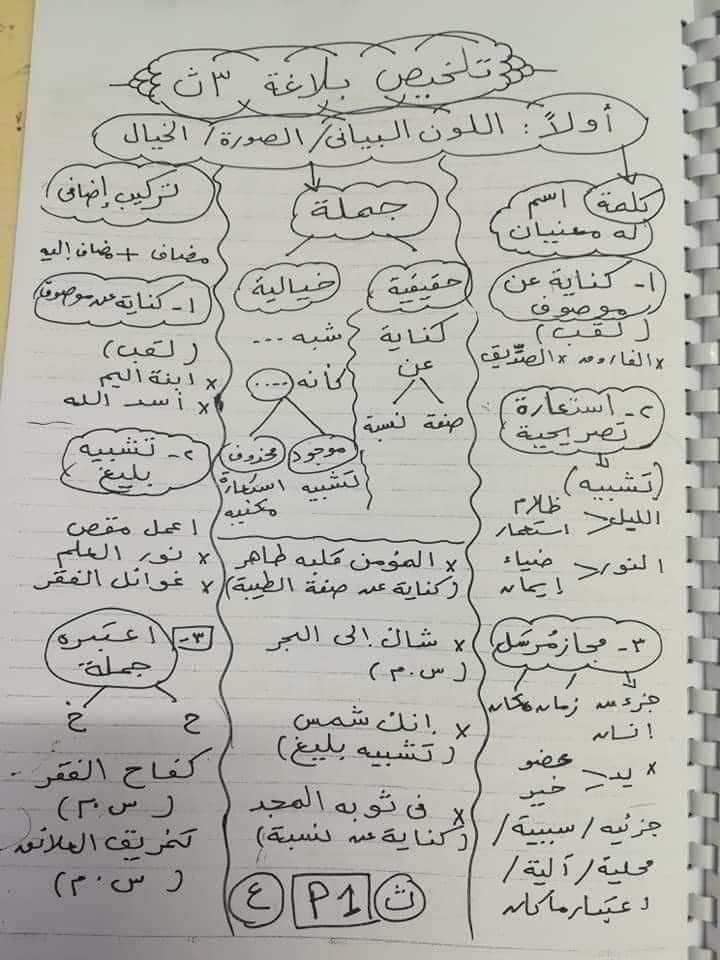 تلخيص بلاغة ٣ث
أولاً: اللون البياني/ الصورة/ الخيال
كلمة اسم
له معنيان
١- كناية عن
موصوف
(لقب)
× الفاروق × الصدِّيق
٢- استعارة
تصريحية
(تشبيه)
الليل < ظلام
استعمار
النور < ضياء
إيمان
٣- مجاز مُرسَل
جزء من زمان مكان
انسان
× يد < عضو
خير
جزئيه / سببية /
محلية / آلية /
اعتبار ماكان
جملة
حقيقية
كناية
عن
صفة نسبة
خيالية
شبه ...
كأنه ....
موجود
تشبيه
محذوف
استعارة
مكنيه
× المؤمن قلبه طاهر
(كناية عن صفة الطيبة)
× شاك إلى البحر
(س.م)
× إنك شمس
(تشبيه بليغ)
× فى ثوبه المجد
(كناية عن نسبة)
تركيب إضافى
مضاف + مضاف إليه
١- كناية عن موصوف
(لقب)
× ابنة اليم
× أسد الله
٢- تشبيه
بليغ
اعمل مقص
× نور العلم
× غوائل الفقر
٣- اعتبره
جملة
ح خ
كفاح الفقر
(س.م)
تمزيق العلائق
(س.م)
ث P1 ع